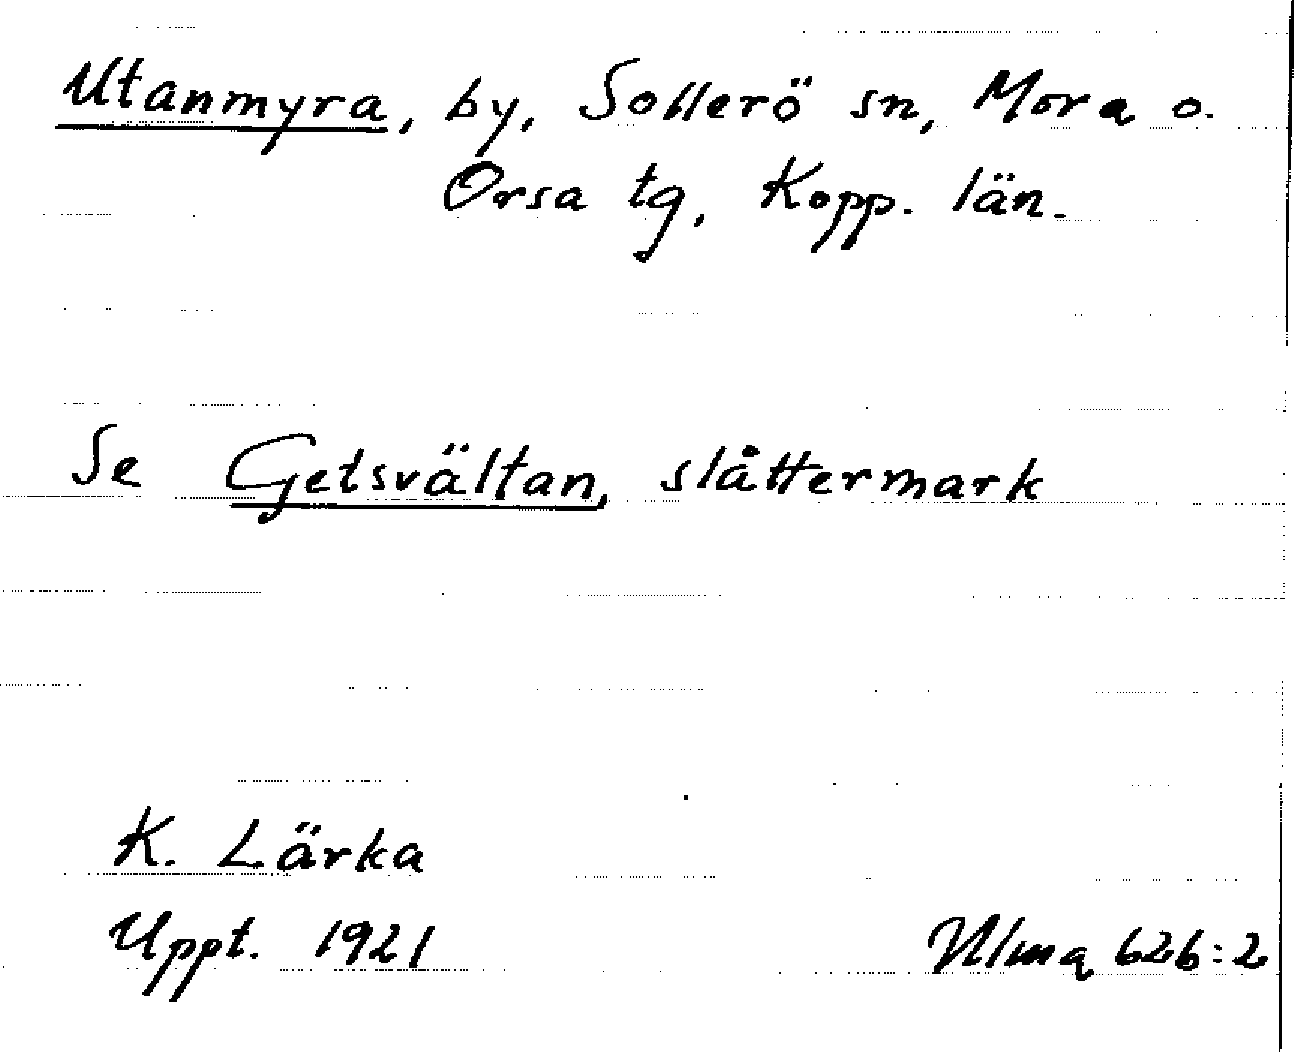 Utanmyra, by, Sollerö sn, Mora o.
Orsa tg, Kopp. län.
Se Getsvältan, slåttermark
K. Lärka
Uppt. 1921
Ulma 626:2